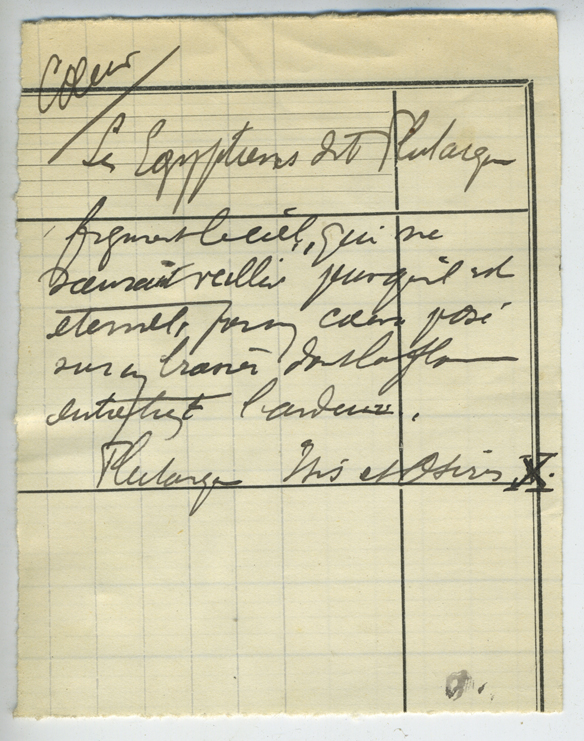 Cœur
Les Egyptiens dit Plutarque
figurent le ciel, qui ne
saurait vieillir puisqu'il est
eternel, par un cœur posé
sur un brasier dont la flamme
entretient l'ardeur.
Plutarque Isis et Osiris X.